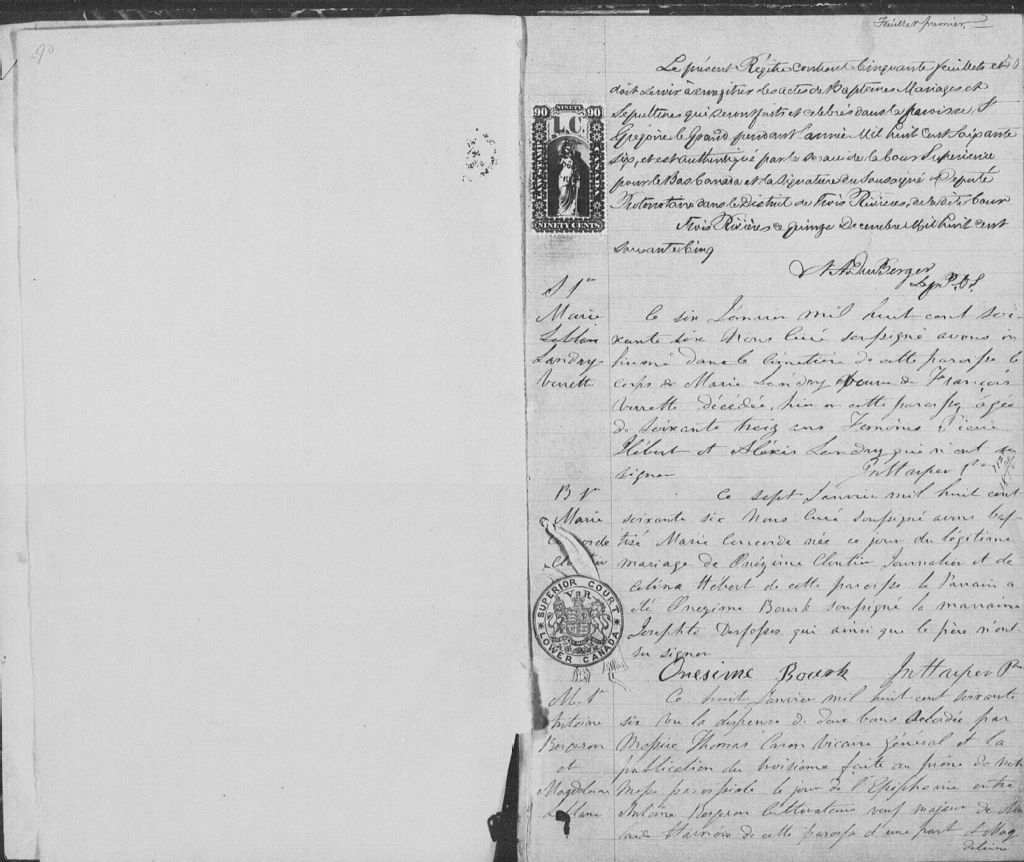 90
Feuillet premier
Le présent Régitre contenant Cinquante feuillets et 50
doit servir à enregitrer les actes de Baptemes Mariages et
Sepultures qui seront faits et celebrés dans la paroisse St
Grégoire le Grand pendant l'année Mil huit cent soixante
six, et est authentiqué par le sceau de la Cour Superieure
pour le Bas Canada et la signature du Soussigné Deputé
Protonotaire dans le District de Trois Rivières, de la dite Cour
Trois Rivières ce quinze Decembre Mil huit cent
soixante Cinq
Dep P. C. S.
NINETY
90 L.C. 90
NINETY CENTS
S 1re
Marie
Landry
Verrette
Le six Janvier mil huit cent soi-
xante six Nous Curé soussigné avons in
humé dans le Cimetière de cette paroisse le
corps de Marie Landry veuve de François
Verrette décédée, hier en cette paroisse, agée
de soixante treize ans Temoins Pierre
Hébert et Aléxis Landry qui n'ont su
signer
JnHarper Ptre
B 1r
Marie
Ce sept Janvier mil huit cent
soixante six Nous Curé soussigné avons bap-
tisé Marie Concorde née ce jour du légitime
mariage de Onézime Cloutier Journalier et de
Celina Hébert de cette paroisse le Parrain a
été Onezime Bourk soussigné la marraine
Josephte Desfossés qui ainsi que le père n'ont
su signer
Onesime Bourk JnHarper Ptre
SUPERIOR COURT
V R
LOWER CANADA
M. 1r
Antoine
Bergeron
et
Magdeleine
Leblanc
Ce huit Janvier mil huit cent soixante
six vu la dispense de deux bans accordée par
Messire Thomas Caron Vicaire Général et la
publication du troisième faite au prône de notre
Messe paroissiale le jour de l'Epiphanie entre
Antoine Bergeron Cultivateur veuf majeur de
de cette paroisse d'une part et Mag
deleine